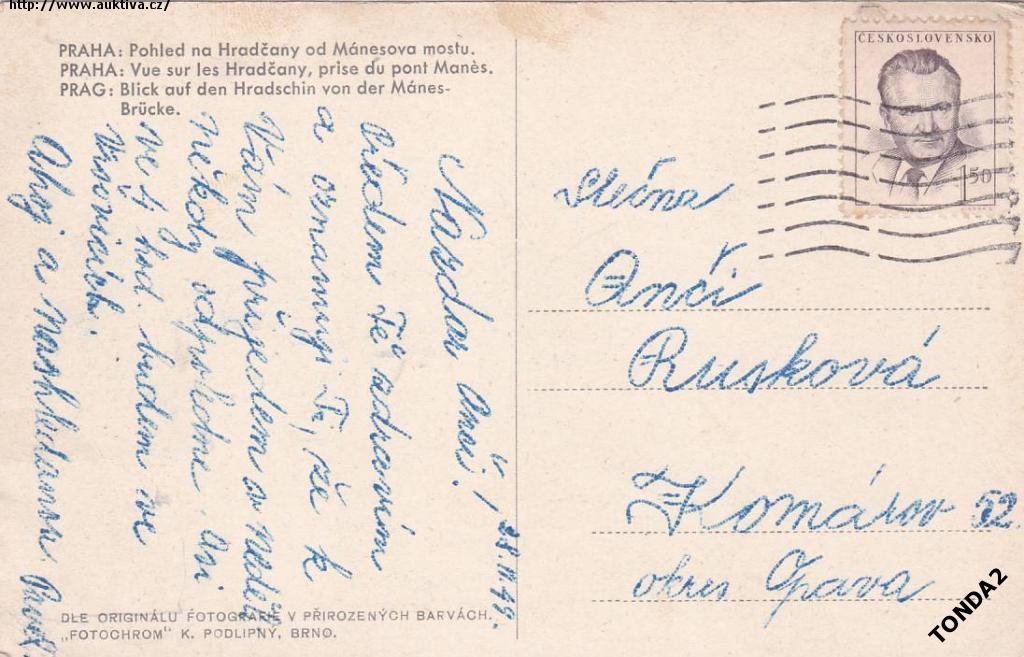 http://www.auktiva.cz/
PRAHA: Pohled na Hradčany od Mánesova mostu.
PRAHA: Vue sur les Hradčany, prise du pont Manès.
PRAG: Blick auf den Hradschin von der Mánes-
Brücke.
Nazdar Anči!
28.IV.49.
Předem Tě zdravím
a oznamuji Ti, že k
Vám přijedem v neděli
někdy odpoledne. Asi
ve 4 hod. budem ve
Vršovicích.
Ahoj a Nashledanou Pavel.
DLE ORIGINÁLU FOTOGRAFIE V PŘIROZENÝCH BARVÁCH.
„FOTOCHROM" K. PODLIPNÝ, BRNO.
ČESKOSLOVENSKO
1 50
Slečna
Anči
Rusková
Komárov 52
okres Opava
TONDA2